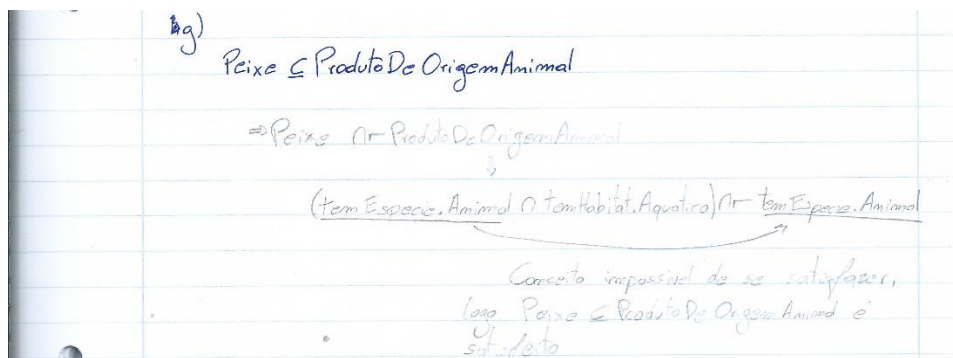 g)
Peixe ⊆ ProdutoDeOrigemAnimal
⇒ Peixe ∩ ¬ ProdutoDeOrigemAnimal
⇓
(temEspecie.Animal ∩ temHabitat.Aquatico) ∩ ¬ temEspecie.Animal
Conceito impossivel de se satisfazer,
logo Peixe ⊆ ProdutoDeOrigemAnimal é
satisfeito